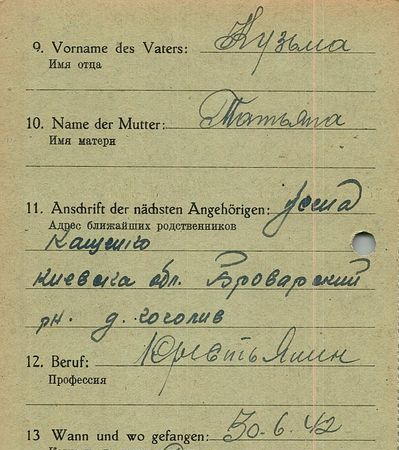 9. Vorname des Vaters: Кузьма
Имя отца
10. Name der Mutter: Татьяна
Имя матери
11. Anschrift der nächsten Angehörigen:
Адрес ближайших родственников
Кащенко
Киевска обл. Броварский
рн. д. гоголив
12. Beruf: Крестьянин
Профессия
13 Wann und wo gefangen: 30.6.42